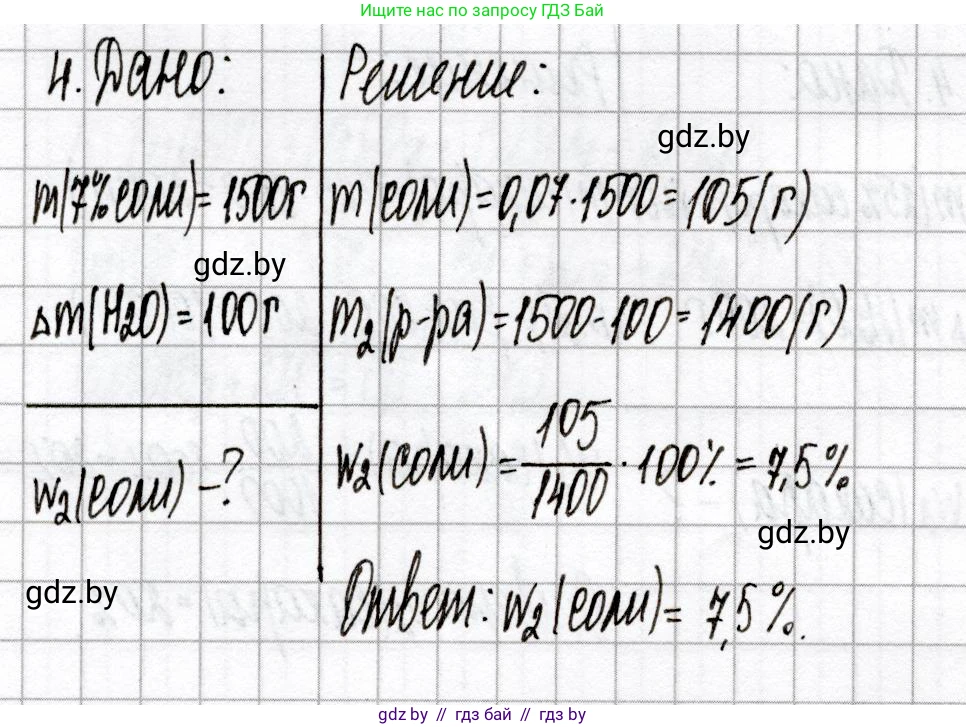 Ищите нас по запросу ГДЗ Бай
4. Дано:
Решение:
gdz.by
m(7% соли) = 1500г
m(соли) = 0,07·1500 = 105(г)
gdz.by
Δm(H2O) = 100г
m2(р-ра) = 1500-100 = 1400(г)
w2(соли) = 105/1400 · 100% = 7,5%
w2(соли) - ?
gdz.by
gdz.by
Ответ: w2(соли) = 7,5%.
gdz.by // гдз бай // gdz.by